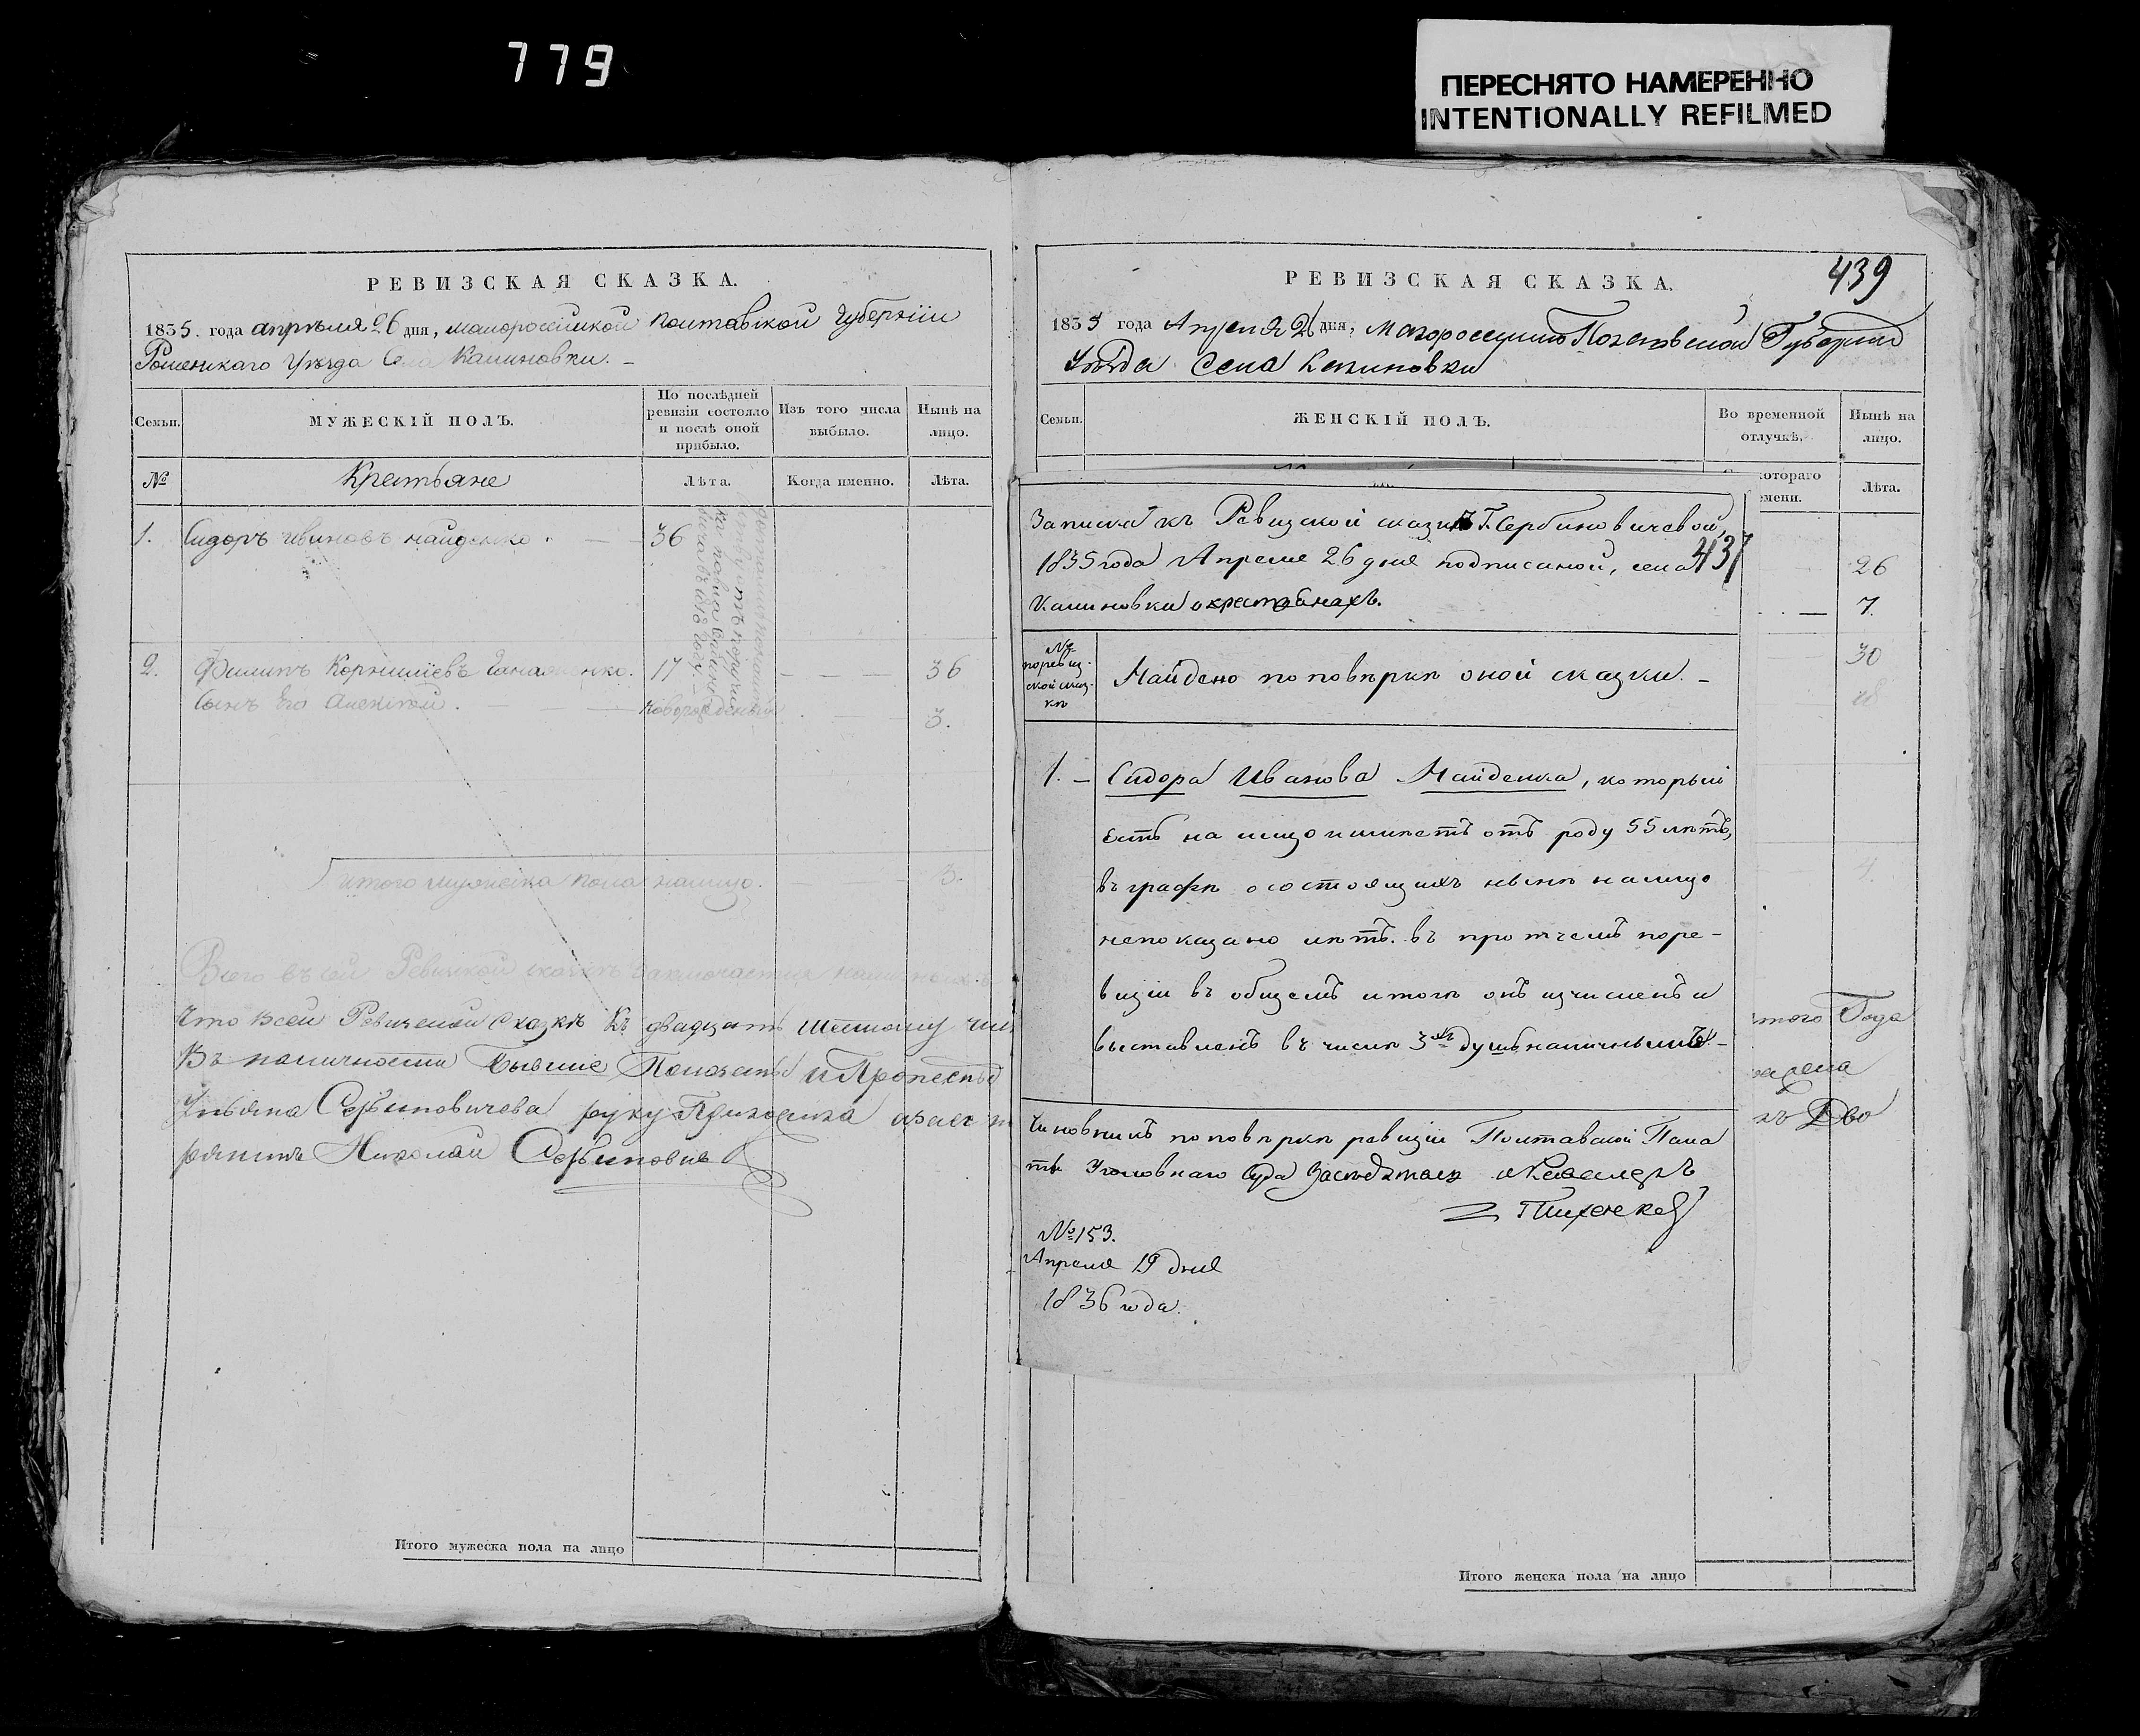 779
ПЕРЕСНЯТО НАМЕРЕННО
INTENTIONALLY REFILMED
РЕВИЗСКАЯ СКАЗКА.
1835. года апреля 26 дня, малороссийской Полтавской Губернiи
Роменскаго Уезда Села Калиновки.
Семьи.
МУЖЕСКIЙ ПОЛЪ.
По послѣдней
ревизiи состояло
и послѣ оной
прибыло.
Изъ того числа
выбыло.
Нынѣ на
лицо.
№
Крестьяне
Лѣта.
Когда именно.
Лѣта.
1. Сидоръ Ивановъ найденко. 36
2. Филипъ Корнилiевъ 17 36
Сынъ Его Алексѣй. новорожденный 3.
итого мужеска пола налицо. 3.
Всего въ сей Ревизской сказкѣ заключается наличныхъ
Что всей Ревизской Сказкѣ Къ двадцать шестому
Въ наличности
Ульяна Сербиновичева руку Приложила
Николай Сербинович
Итого мужеска пола на лицо
РЕВИЗСКАЯ СКАЗКА.
439
1835 года Апреля 26 дня, Малороссийской Полтавской Губернии
Уезда Села Калиновки
Семьи.
ЖЕНСКIЙ ПОЛЪ.
Во временной
отлучкѣ.
Нынѣ на
лицо.
котораго
Лѣта.
26
7.
30
18
4.
Года
Дво
Записка къ Ревизской сказкѣ Г. Сербиновичевой,
1835 года Апреля 26 дня подписаной, села
437
Калиновки о крестьянахъ.
№
по ревиз-
ской сказ-
кѣ
Найдено по повѣркѣ оной сказки.
1. Сидора Иванова Найденка, который
есть на лицо и имѣетъ отъ роду 55 лѣтъ,
въ графѣ о состоящихъ нынѣ на лицо
непоказано лѣтъ. въ протчемъ по ре-
визiи въ общемъ итогѣ онъ изчисленъ и
выставленъ въ числѣ 3хъ душъ наличныхъ.
Чиновникъ по повѣркѣ ревизiи Полтавской Пала
ты Уголовнаго Суда Заседатель и Кавалеръ
№ 153.
Апреля 19 дня
1836 года.
Итого женска пола на лицо